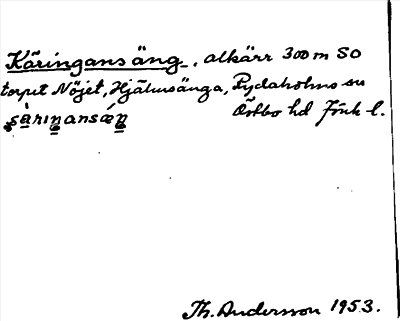 Käringans äng, alkärr 300 m SO
torpet Nöjet, Hjälmsänga, Rydaholms sn
Östbo hd Jönk l.
Th. Andersson 1953.